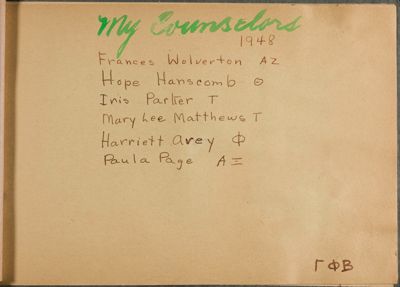 My Counselors
1948
Frances Wolverton AZ
Hope Hanscomb Θ
Iris Parker T
Mary Lee Matthews T
Harriett Avey Φ
Paula Page ΑΞ
ΓΦΒ